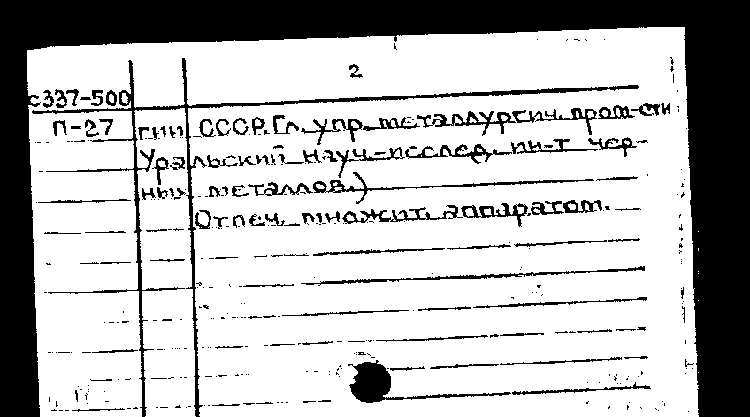 2
с337-500
П-27 гии СССР. Гл. упр. металлургич. пром-сти
Уральский науч.-исслед. ин-т чер-
ных металлов.)
Отпеч. множит. аппаратом.